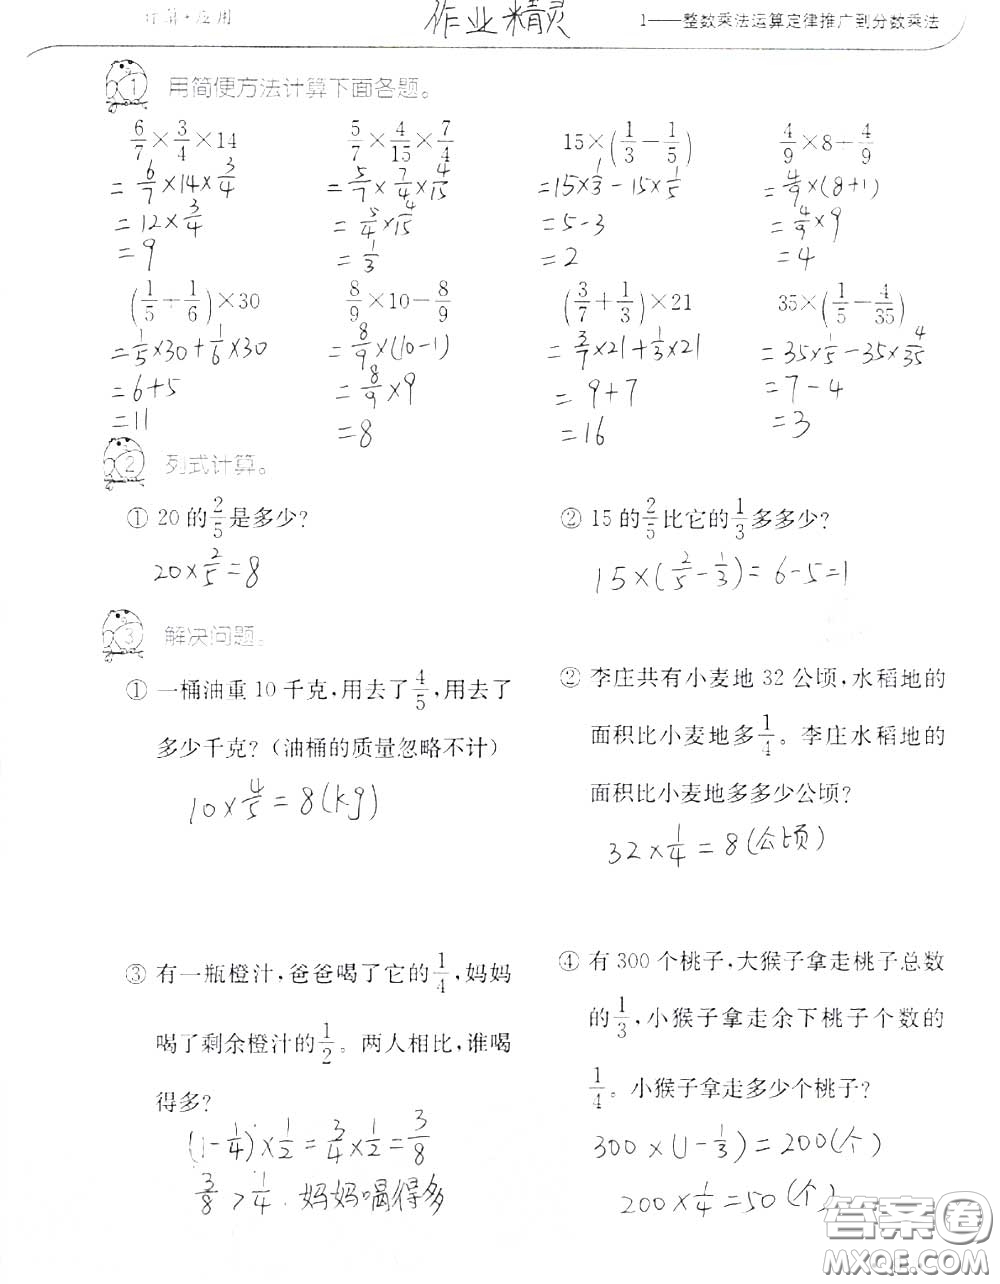 计算·应用
作业精灵
1——整数乘法运算定律推广到分数乘法
1 用简便方法计算下面各题。
6/7×3/4×14 5/7×4/15×7/4 15×(1/3−1/5) 4/9×8+4/9
=6/7×14×3/4 =5/7×7/4×4/15 =15×1/3−15×1/5 =4/9×(8+1)
=12×3/4 =5/4×4/15 =5-3 =4/9×9
=9 =1/3 =2 =4
(1/5+1/6)×30 8/9×10−8/9 (3/7+1/3)×21 35×(1/5−4/35)
=1/5×30+1/6×30 =8/9×(10-1) =3/7×21+1/3×21 =35×1/5−35×4/35
=6+5 =8/9×9 =9+7 =7-4
=11 =8 =16 =3
2 列式计算。
① 20的2/5是多少?
20×2/5=8
② 15的2/5比它的1/3多多少?
15×(2/5−1/3)=6-5=1
3 解决问题。
① 一桶油重10千克,用去了4/5,用去了
多少千克?(油桶的质量忽略不计)
10×4/5=8(kg)
② 李庄共有小麦地32公顷,水稻地的
面积比小麦地多1/4。李庄水稻地的
面积比小麦地多多少公顷?
32×1/4=8(公顷)
③ 有一瓶橙汁,爸爸喝了它的1/4,妈妈
喝了剩余橙汁的1/2。两人相比,谁喝
得多?
(1-1/4)×1/2=3/4×1/2=3/8
3/8>1/4.妈妈喝得多
④ 有300个桃子,大猴子拿走桃子总数
的1/3,小猴子拿走余下桃子个数的
1/4。小猴子拿走多少个桃子?
300×(1-1/3)=200(个)
200×1/4=50(个)
答案圈
MXQE.COM